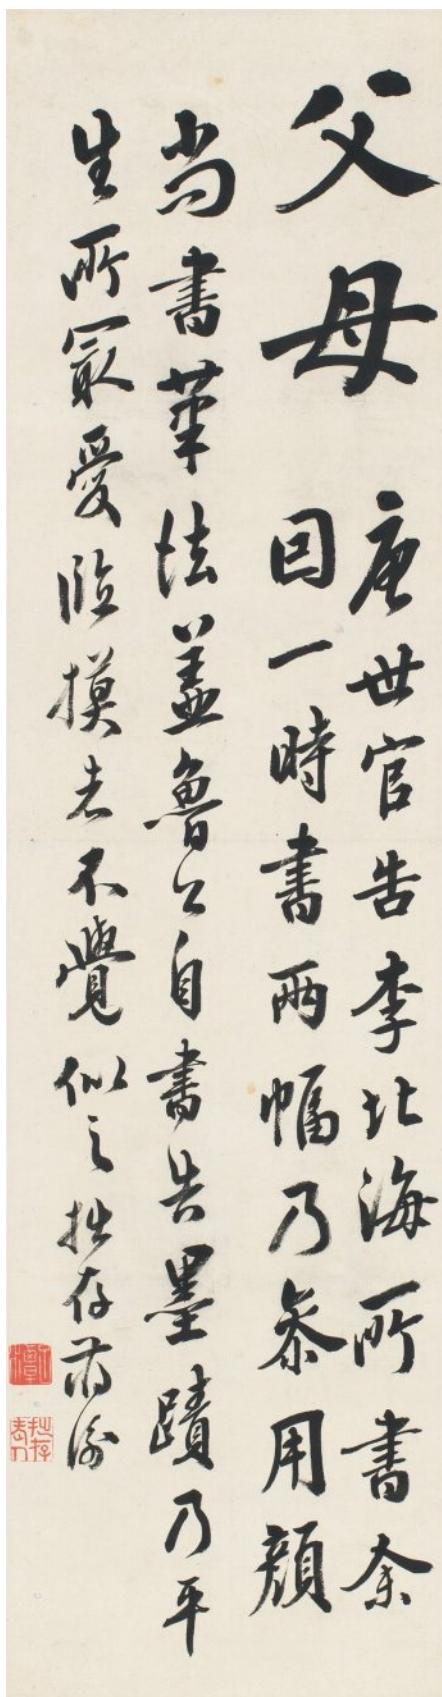 父母
唐世官告李北海所書余
因一時書兩幅乃參用顏
尚書筆法蓋魯公自書告墨蹟乃平
生所最愛臨摸者不覺似之拙存蔣衡
拙存老人